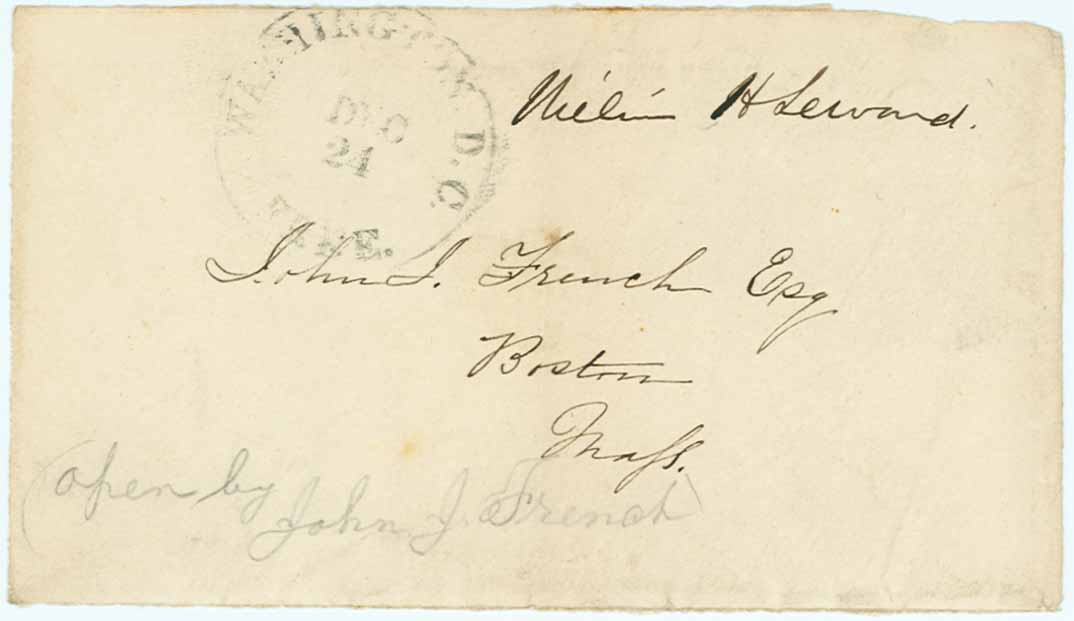 WASHINGTON D.C.
DEC
24
FREE.
William H Seward.
John J. French Esq
Boston
Mass.
(open by
John J. French)